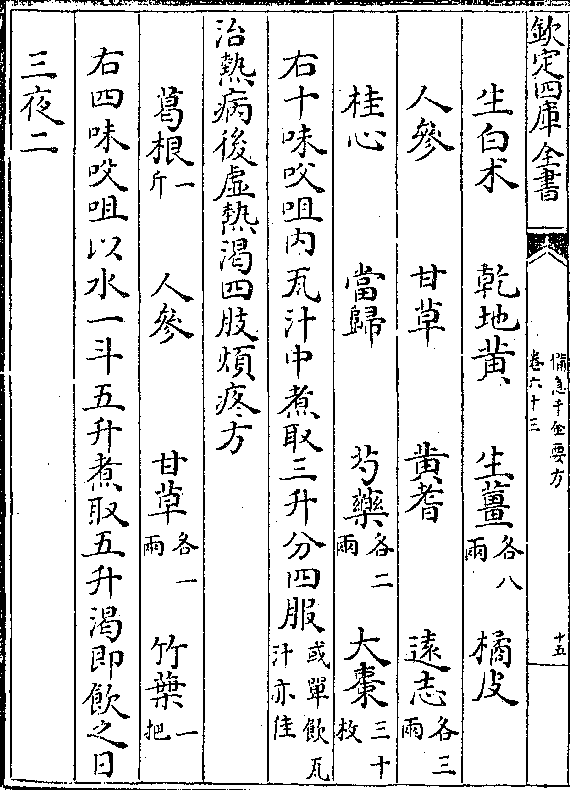 欽定四庫全書
備急千金要方
卷六十三
十五
生白术 乾地黄 生薑各八兩 橘皮
人參 甘草 黄耆 遠志各三兩
桂心 當歸 芍藥各二兩 大棗三十枚
右十味㕮咀内瓦汁中煮取三升分四服或單飲瓦汁亦佳
治熱病後虛熱渴四肢煩疼方
葛根一斤 人參 甘草各一兩 竹葉一把
右四味㕮咀以水一斗五升煮取五升渴即飲之日
三夜二